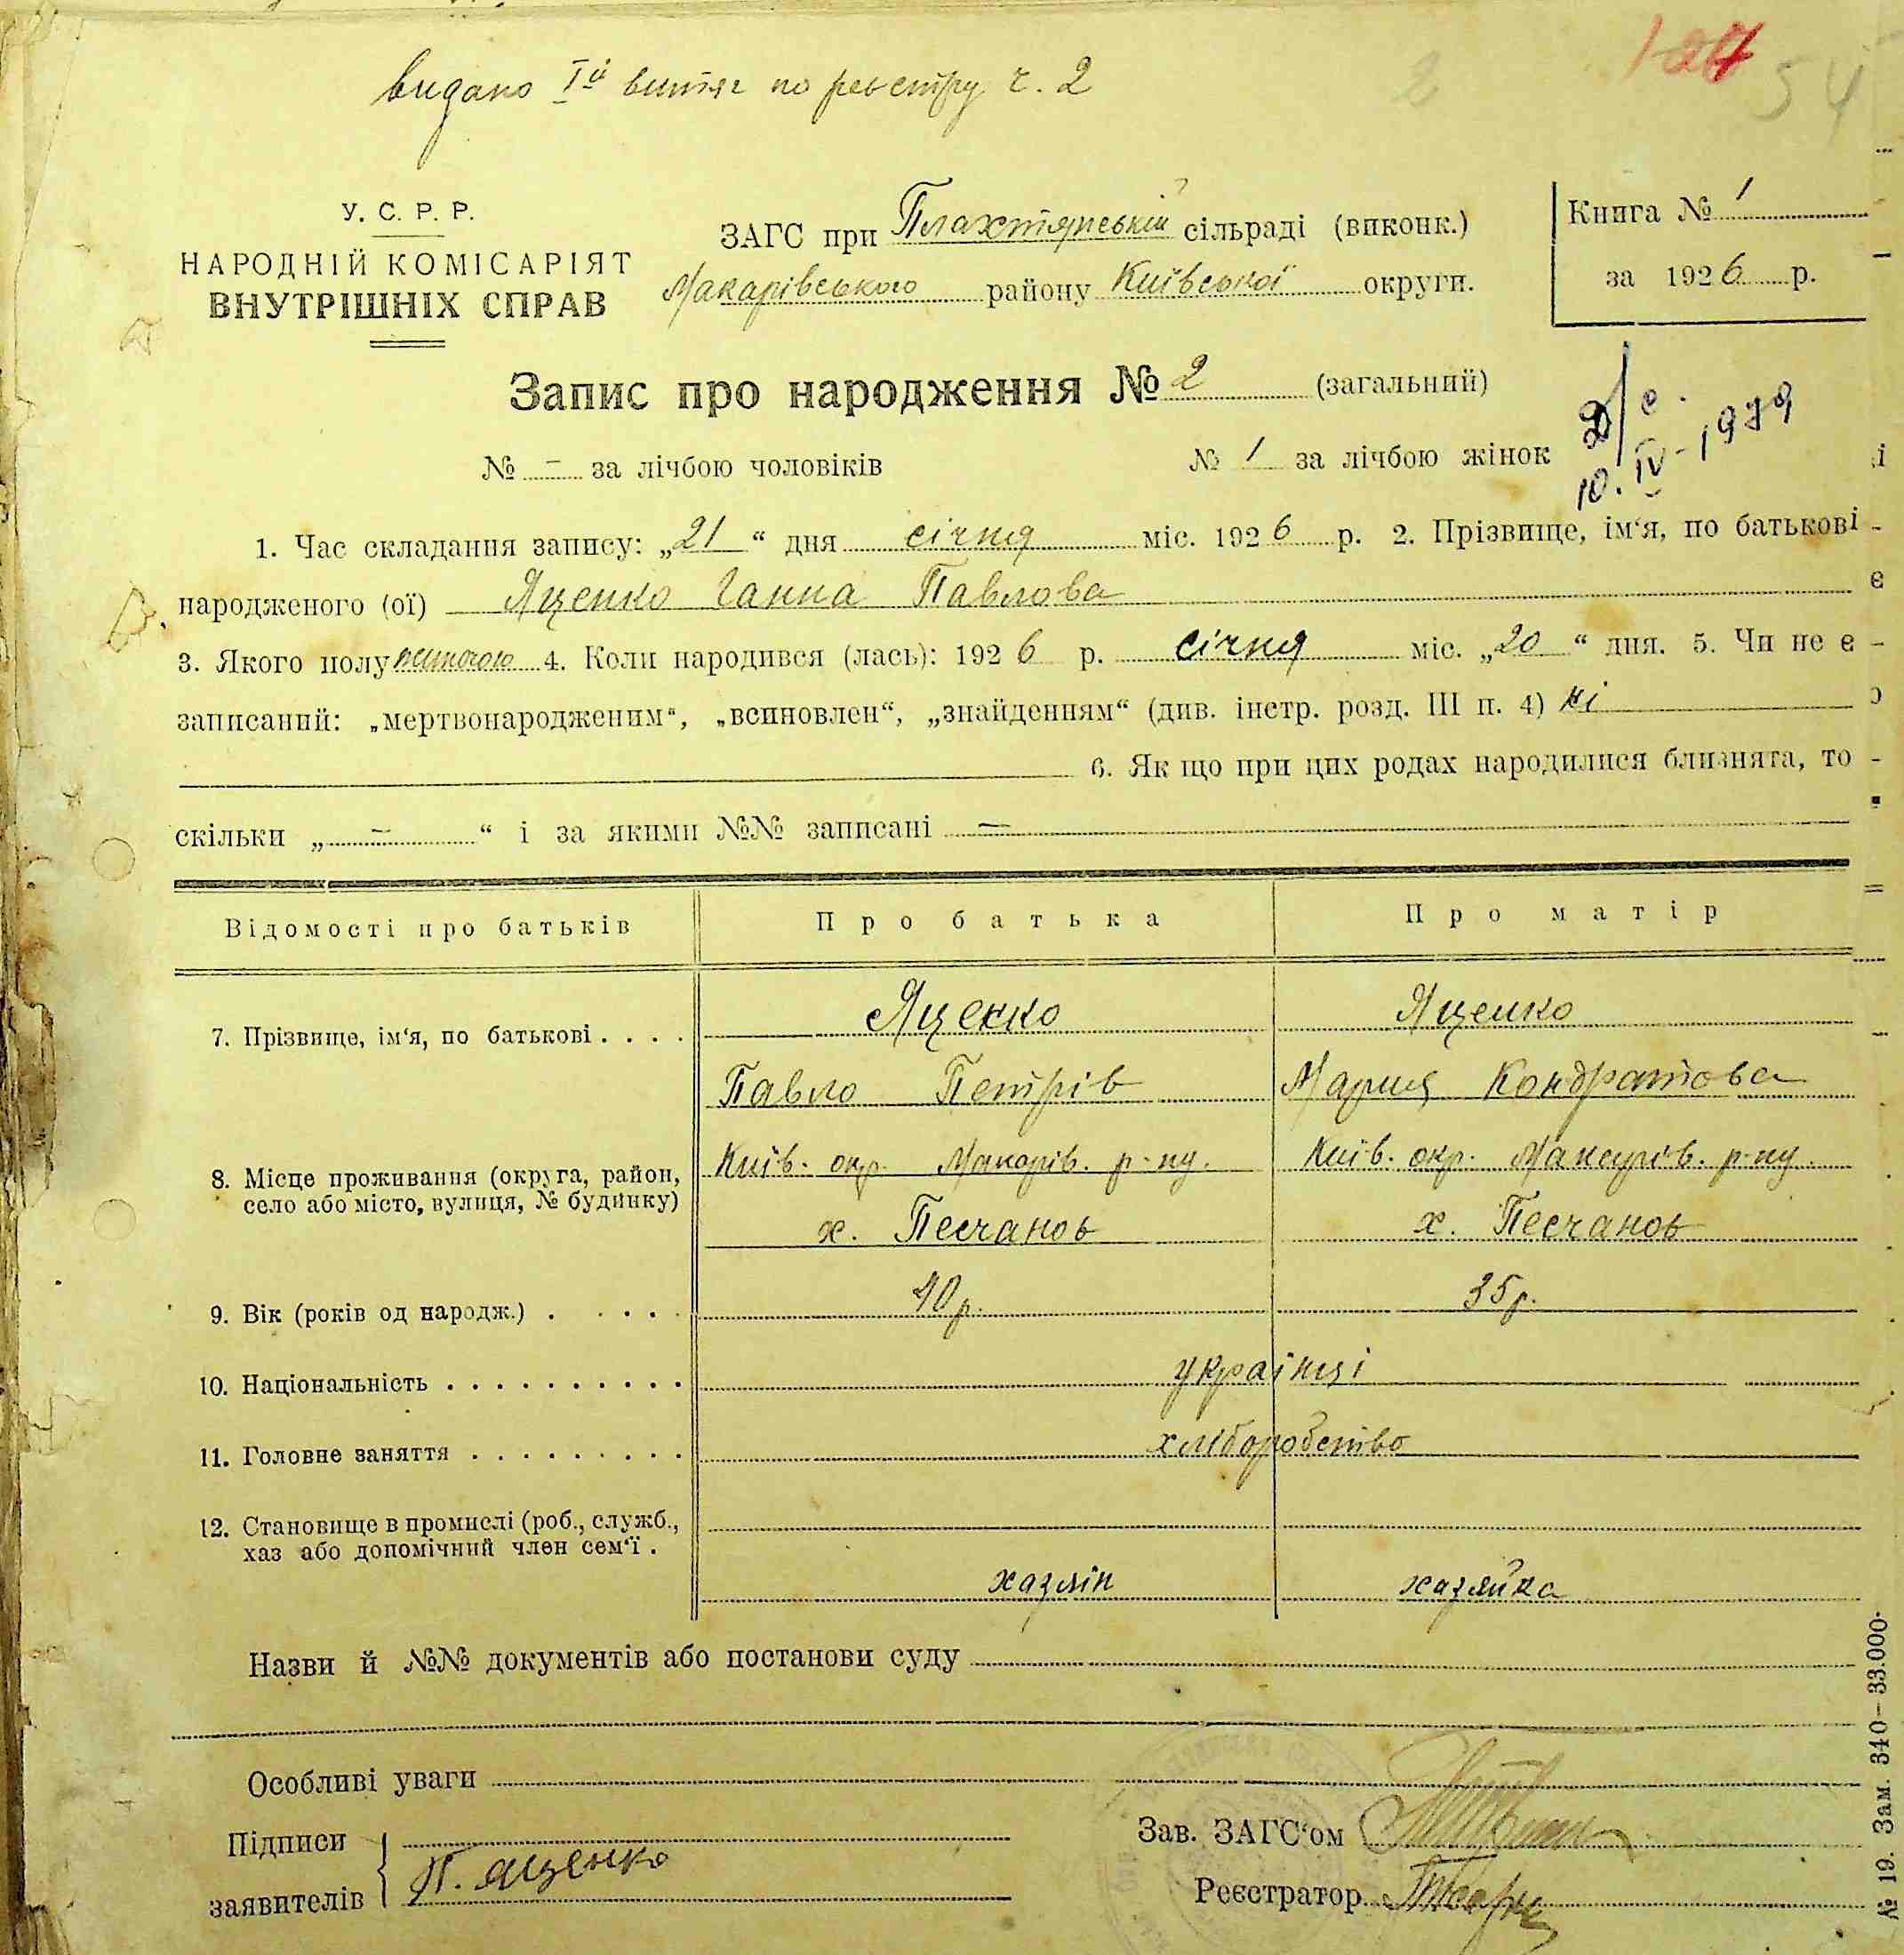 видано Iй витяг по реєстру ч. 2
124
54
У. С. Р. Р.
НАРОДНІЙ КОМІСАРІЯТ
ВНУТРІШНІХ СПРАВ
ЗАГС при Плахтянській сільраді (виконк.)
Макарівського району Київської округи.
Книга № 1
за 1926 р.
Запис про народження № 2 (загальний)
№ – за лічбою чоловіків № 1 за лічбою жінок
10. IV - 1979
1. Час складання запису: „21“ дня січня міс. 1926 р. 2. Прізвище, ім‘я, по батькові
народженого (ої) Яценко Ганна Павлова
3. Якого полу жіночого 4. Коли народився (лась): 1926 р. січня міс. „20“ дня. 5. Чи не є
записаний: „мертвонародженим“, „всиновлен“, „знайденням“ (див. інстр. розд. III п. 4) ні
6. Як що при цих родах народилися близнята, то
скільки „ – “ і за якими №№ записані —
Відомості про батьків Про батька Про матір
7. Прізвище, ім‘я, по батькові . . . . Яценко Яценко
Павло Петрів Мария Кондратова
8. Місце проживання (округа, район, село або місто, вулиця, № будинку) Київ. окр. Макарів. р-ну. Київ. окр. Макарів. р-ну.
х. Песчанов х. Песчанов
9. Вік (років од народж.) . . . . . 40 р. 35 р.
10. Національність . . . . . . . . . . українці
11. Головне заняття . . . . . . . . . хліборобство
12. Становище в промислі (роб., служб.,
хаз або допомічний член сем‘ї .
хазяїн хазяйка
Назви й №№ документів або постанови суду
Особливі уваги
Підписи
заявителів П. Яценко
Зав. ЗАГС‘ом
Реєстратор
№ 19. Зам. 340–33.000.